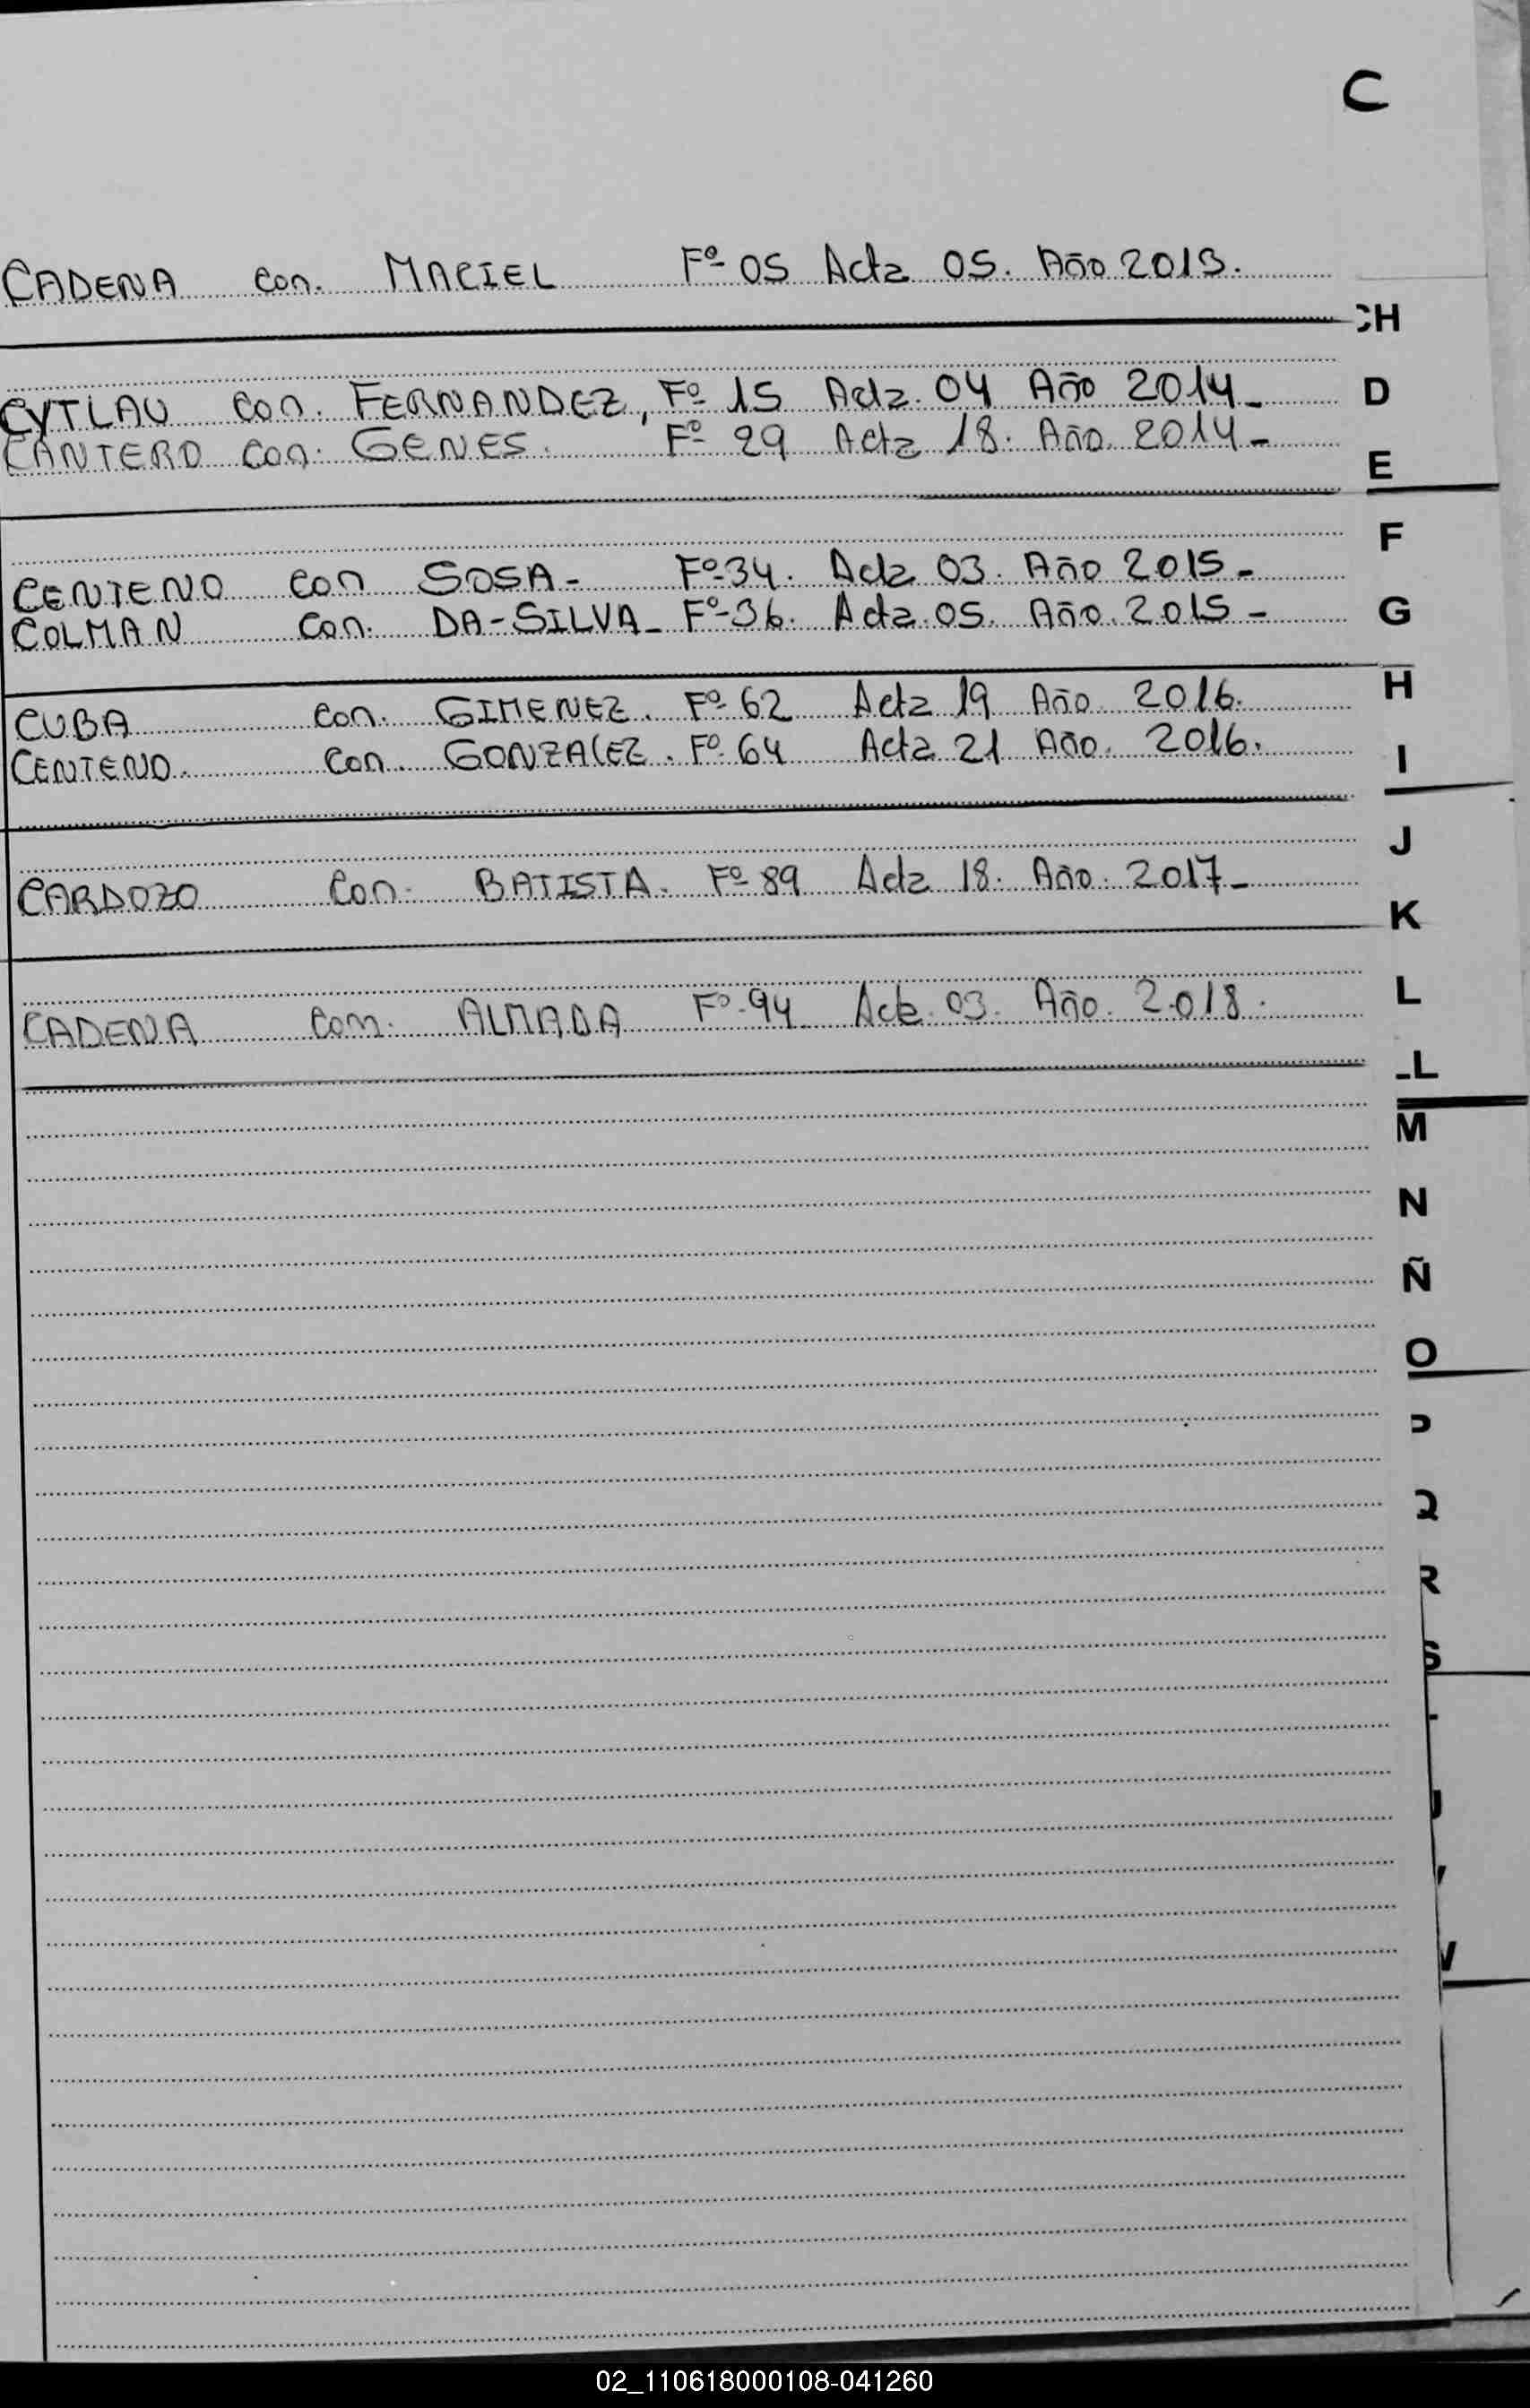 C
CADENA con. MACIEL Fº 05 Acta 05. Año 2013.
CH
CYTLAU con. FERNANDEZ, Fº 15 Acta. 04 Año 2014_
D
CANTERO con. GENES. Fº 29 Acta 18. Año. 2014_
E
F
CENTENO con SOSA- Fº-34. Acta 03. Año 2015-
COLMAN con. DA-SILVA_ Fº-36. Acta. 05. Año. 2015-
G
H
CUBA con. GIMENEZ. Fº-62 Acta 19 Año. 2016.
CENTENO. con. GONZALEZ. Fº-64 Acta 21 Año. 2016.
I
J
CARDOZO con. BATISTA. Fº 89 Acta 18. Año. 2017_
K
CADENA con. ALMADA Fº-94 Acta. 03. Año. 2018.
L
LL
M
N
Ñ
O
P
Q
R
S
02_110618000108-041260